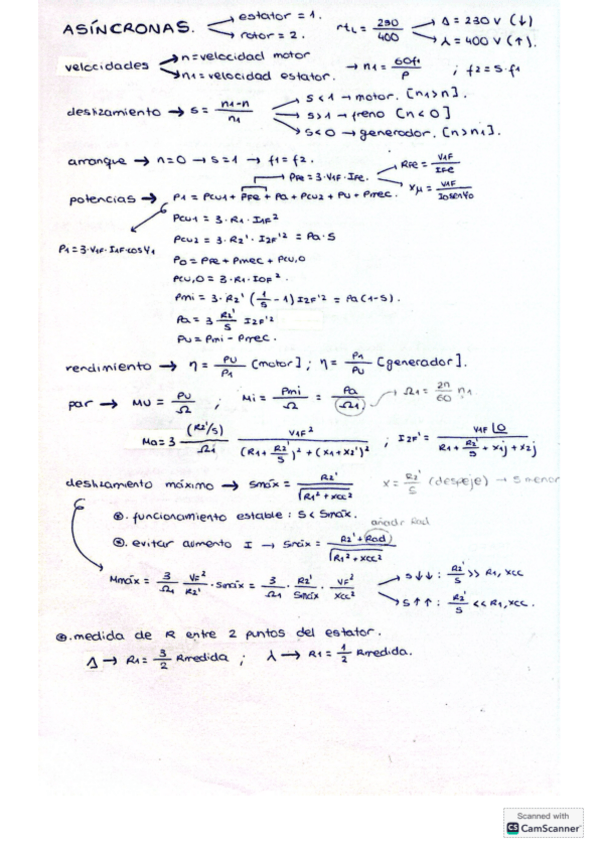 ASÍNCRONAS. → estator = 1. → rotor = 2. rtL = 230/400 → Δ = 230 V (↓) → λ = 400 V (↑).
velocidades → n = velocidad motor → n1 = velocidad estator. → n1 = 60f1/P ; f2 = s·f1
deslizamiento → s = (n1-n)/n1 → s < 1 → motor. [n1>n].
→ s>1 → freno [n<0]
→ s<0 → generador. [n>n1].
arranque → n=0 → s=1 → f1=f2.
→ PFe = 3·V1F·IFe. → RFe = V1F/IFe → Xμ = V1F/(I0senφ0)
potencias → P1 = Pcu1 + PFe + Pa + Pcu2 + Pu + Pmec.
P1 = 3·V1F·I1F·cosφ1
Pcu1 = 3·R1·I1F²
Pcu2 = 3·R2'·I2F'² = Pa·s
P0 = PFe + Pmec + Pcu,0
Pcu,0 = 3·R1·I0F².
Pmi = 3·R2'(1/s - 1) I2F'² = Pa(1-s).
Pa = 3 R2'/s I2F'²
Pu = Pmi - Pmec.
rendimiento → η = Pu/P1 [motor] ; η = P1/Pu [generador].
par → Mu = Pu/Ω ; Mi = Pmi/Ω = Pa/Ω1 → Ω1 = 2π/60 n1
Ma = 3 (R2'/s)/Ω1 V1F²/((R1+R2'/s)²+(X1+X2')²) ; I2F' = V1F|0/(R1+R2'/s+X1j+X2j)
deslizamiento máximo → smáx = R2'/√(R1²+Xcc²) x = R2'/s (despeje) → s menor
⊙. funcionamiento estable : s < smáx.
añadir Rad
⊙. evitar aumento I → smáx = (R2'+Rad)/√(R1²+Xcc²)
Mmáx = 3/Ω1 VF²/R2' · smáx = 3/Ω1 · R2'/smáx · VF²/Xcc² → s↓↓ : R2'/s >> R1, Xcc
→ s↑↑ : R2'/s << R1, Xcc.
⊙. medida de R entre 2 puntos del estator.
Δ → R1 = 3/2 Rmedida ; λ → R1 = 1/2 Rmedida.
Scanned with
CS CamScanner